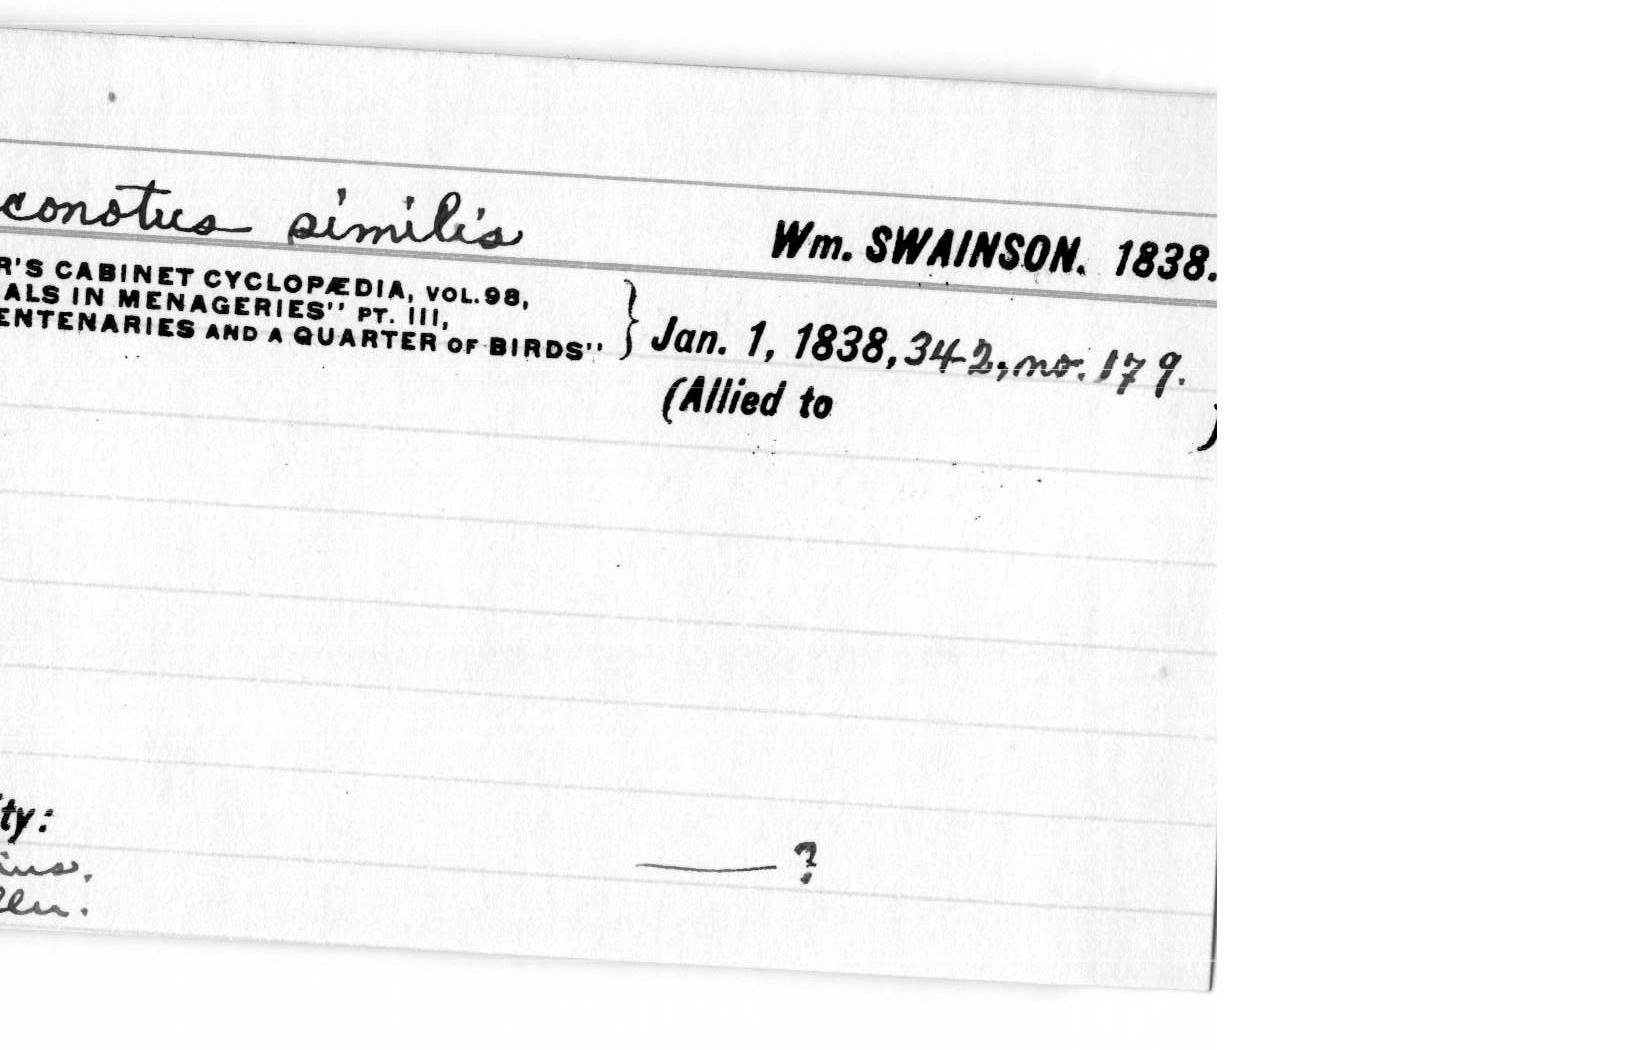 conotus similis Wm. SWAINSON. 1838.
R'S CABINET CYCLOPÆDIA, VOL.98,
ALS IN MENAGERIES" PT. III,
ENTENARIES AND A QUARTER OF BIRDS" } Jan. 1, 1838, 342, no. 179.
(Allied to )
ty:
ius. ——— ?